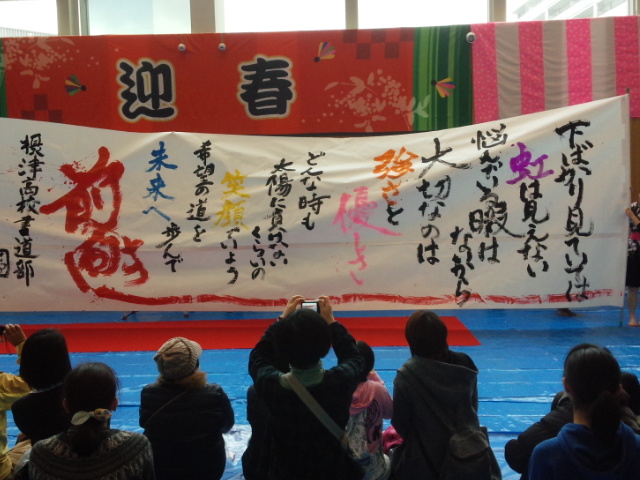 迎春
下ばかり見ていては
虹は見えない
悩んでいる暇は
ないから
大切なのは
強さと
優しさ
どんな時も
太陽に負けない
くらいの
笑顔でいよう
希望の道を
未来へ歩んで
前向き
根津高校書道部